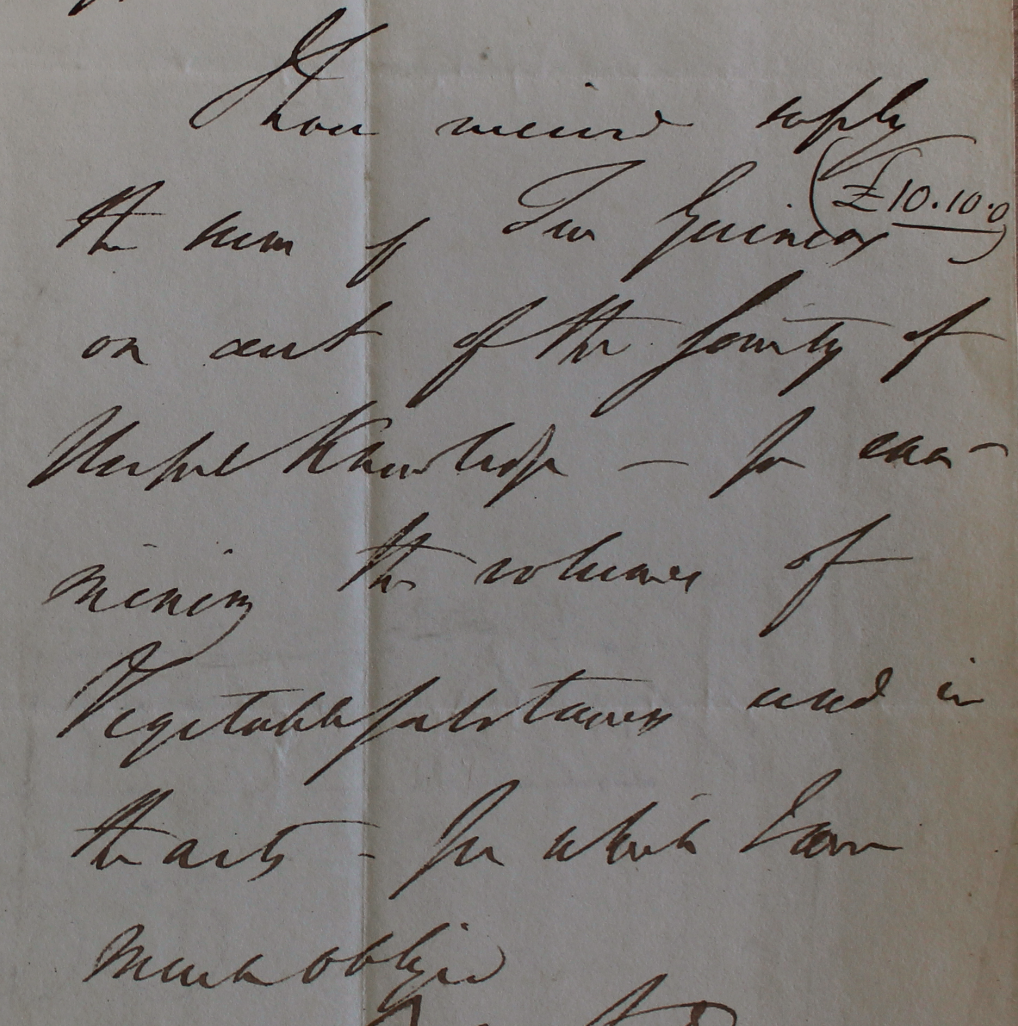 I have received safely
the sum of Ten Guineas (£10.10.0)
on acct of the Society of
Useful Knowledge — for exa-
mining the volumes of
Vegetable substances used in
the arts — for which I am
much obliged